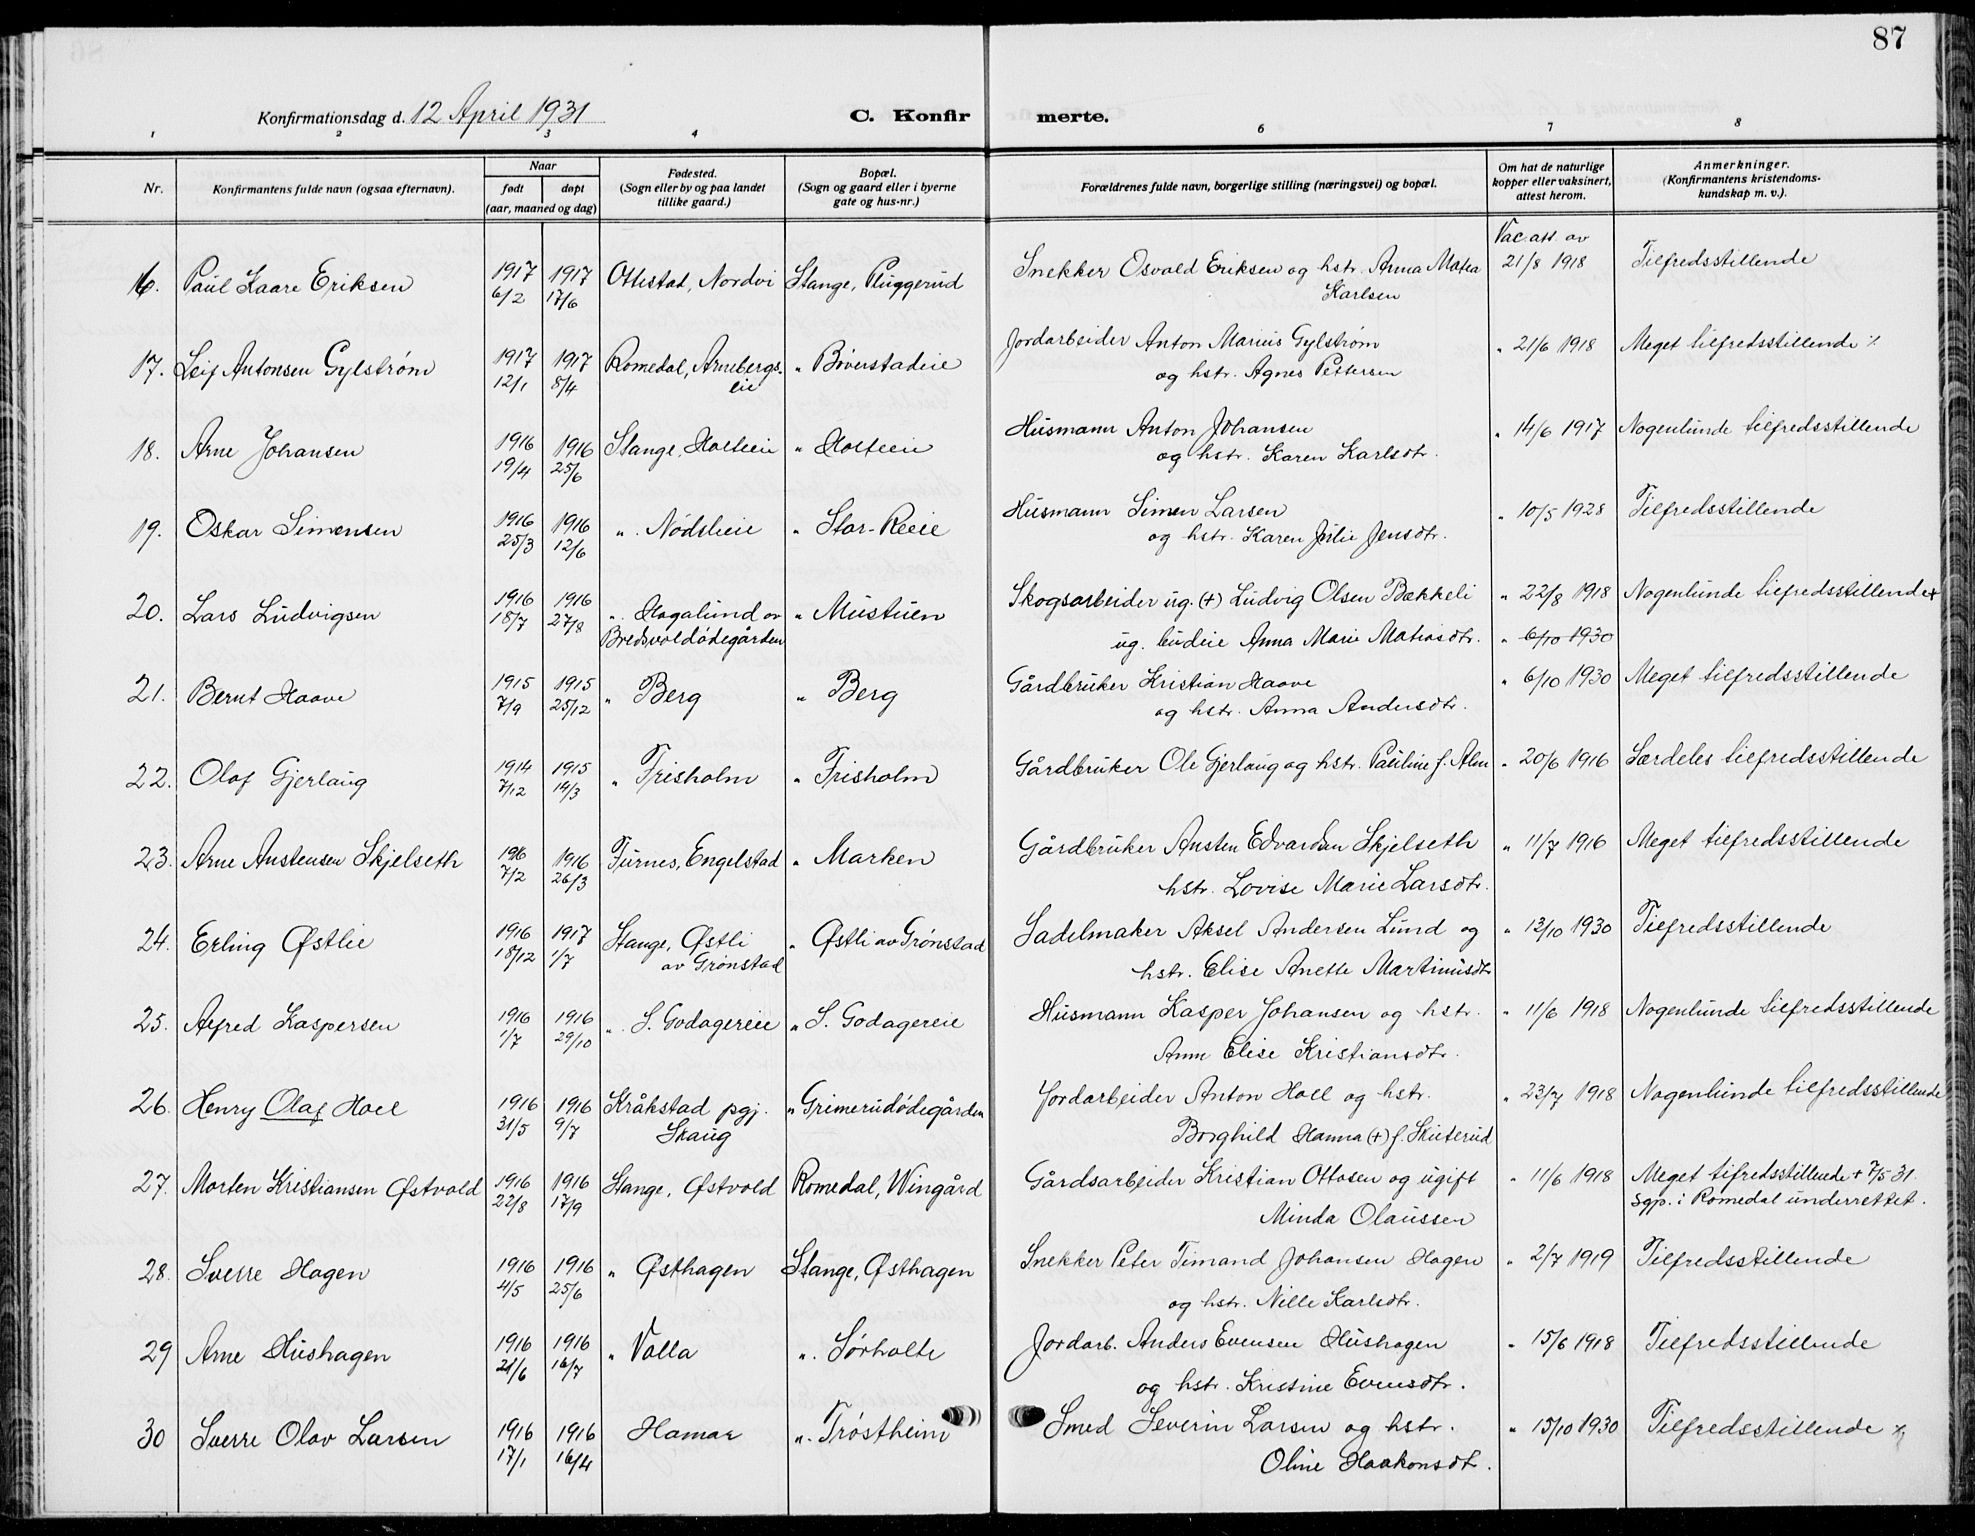 87
Konfirmationsdag d. 12 April 1931 C. Konfirmerte.
1 2 3 4 6 7 8
Nr. Konfirmantens fulde navn (ogsaa efternavn). Naar født døpt (aar, maaned og dag) Fødested. (Sogn eller by og paa landet tillike gaard.) Bopæl. (Sogn og gaard eller i byerne gate og hus-nr.) Forældrenes fulde navn, borgerlige stilling (næringsvei) og bopæl. Om hat de naturlige kopper eller vaksinert, attest herom. Anmerkninger. (Konfirmantens kristendoms-kundskap m. v.).
Vac. att. av
16. Paul Kaare Eriksen 1917 6/2 1917 17/6 Ottestad, Nordvi Stange, Pluggerud Snekker Osvald Eriksen og hstr. Anna Matea 21/8 1918 Tilfredsstillende
Karlsen
17. Leif Antonsen Gylstrøm 1917 12/1 1917 8/4 Romedal, Arnebergs-eie " Bøverstadeie Jordarbeider Anton Marius Gylstrøm " 21/6 1918 Meget tilfredsstillende
og hstr. Agnes Pettersen
18. Arne Johansen 1916 19/4 1916 25/6 Stange, Holteeie " Holteeie Husmann Anton Johansen " 14/6 1917 Nogenlunde tilfredsstillende
og hstr. Karen Karlsdtr.
19. Oskar Simensen 1916 25/3 1916 12/6 " Nødsleie " Stor-Reeie Husmann Simen Larsen " 10/5 1928 Tilfredsstillende
og hstr. Karen Julie Jensdtr.
20. Lars Ludvigsen 1916 18/7 1916 27/8 " Hagalund av Bredsvoldødegården " Mustuen Skogsarbeider ug. (+) Ludvig Olsen Bækkeli " 22/8 1918 Nogenlunde tilfredsstillende +
ug. budeie Anna Marie Matiasdtr. " 6/10 1930
21. Bernt Haave 1915 7/9 1915 25/12 " Berg " Berg Gårdbruker Kristian Haave " 6/10 1930 Meget tilfredsstillende
og hstr. Anna Andersdtr.
22. Olaf Gjerlaug 1914 7/12 1915 19/3 " Frisholm " Frisholm Gårdbruker Ole Gjerlaug og hstr. Pauline f. Alm " 20/6 1916 Særdeles tilfredsstillende
23. Arne Austensen Skjelseth 1916 7/2 1916 26/3 Furnes, Engelstad " Marken Gårdbruker Austen Edvardsen Skjelseth " 11/7 1916 Meget tilfredsstillende
hstr. Lovise Marie Larsdtr.
24. Erling Østlie 1916 18/12 1917 1/7 Stange, Østli av Grønstad " Østli av Grønstad Sadelmaker Aksel Andersen Lund og " 13/10 1930 Tilfredsstillende
hstr. Elise Anette Martinusdtr
25. Alfred Kaspersen 1916 1/7 1916 29/10 " S. Godagereie " S. Godagereie Husmann Kasper Johansen og hstr. " 11/6 1918 Nogenlunde tilfredsstillende
Anne Elise Kristiansdtr.
26. Henry Olaf Hoel 1916 31/5 1916 9/7 Kråkstad pgj. Skaug " Grimerudødegården Jordarbeider Anton Hoel og hstr. " 23/7 1918 Nogenlunde tilfredsstillende
Borghild Hanna (+) f. Skuterud
27. Morten Kristiansen Østvold 1916 22/8 1916 17/9 Stange, Østvold Romedal, Wingård Gårdsarbeider Kristian Ottosen og ugift " 11/6 1918 Meget tilfredsstillende + 7/5 31.
Minda Olaussen sgp. i Romedal underrettet.
28. Sverre Hagen 1916 4/5 1916 25/6 " Østhagen Stange, Østhagen Snekker Peter Timand Johansen Hagen " 2/7 1919 Tilfredsstillende
og hstr. Nille Karlsdtr.
29 Arne Hushagen 1916 21/6 1916 16/7 " Valla " Sørholte Jordarb. Anders Evensen Hushagen " 15/6 1918 Tilfredsstillende
og hstr. Kristine Evensdtr.
30 Sverre Olav Larsen 1916 17/1 1916 16/4 Hamar " Trøstheim Smed Severin Larsen og hstr. " 15/10 1930 Tilfredsstillende
Oline Haakonsdtr.